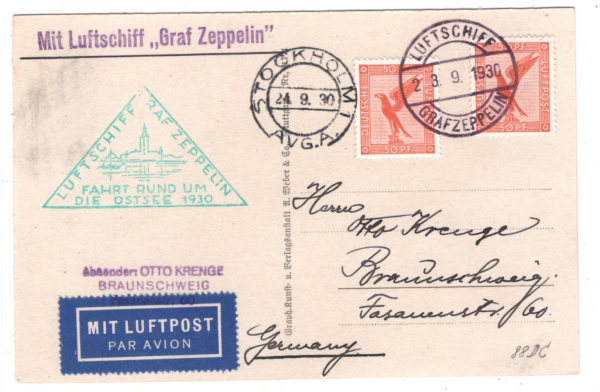 Mit Luftschiff „Graf Zeppelin"
STOCKHOLM 1
24. 9. 30
AVG.A.
DEUTSCHE LUFTPOST
50 PF 50 PF
LUFTSCHIFF
23. 9. 1930
GRAF ZEPPELIN
50 PF
LUFTPOST
50 PF
LUFTSCHIFF GRAF ZEPPELIN
FAHRT RUND UM
DIE OSTSEE 1930
Graph. Kunst- u. Verlagsanstalt A. Weber & Co.
Herrn
Otto Krenge
Braunschweig.
Fasanenstr. 60.
Absender: OTTO KRENGE
BRAUNSCHWEIG
MIT LUFTPOST
PAR AVION
Germany.